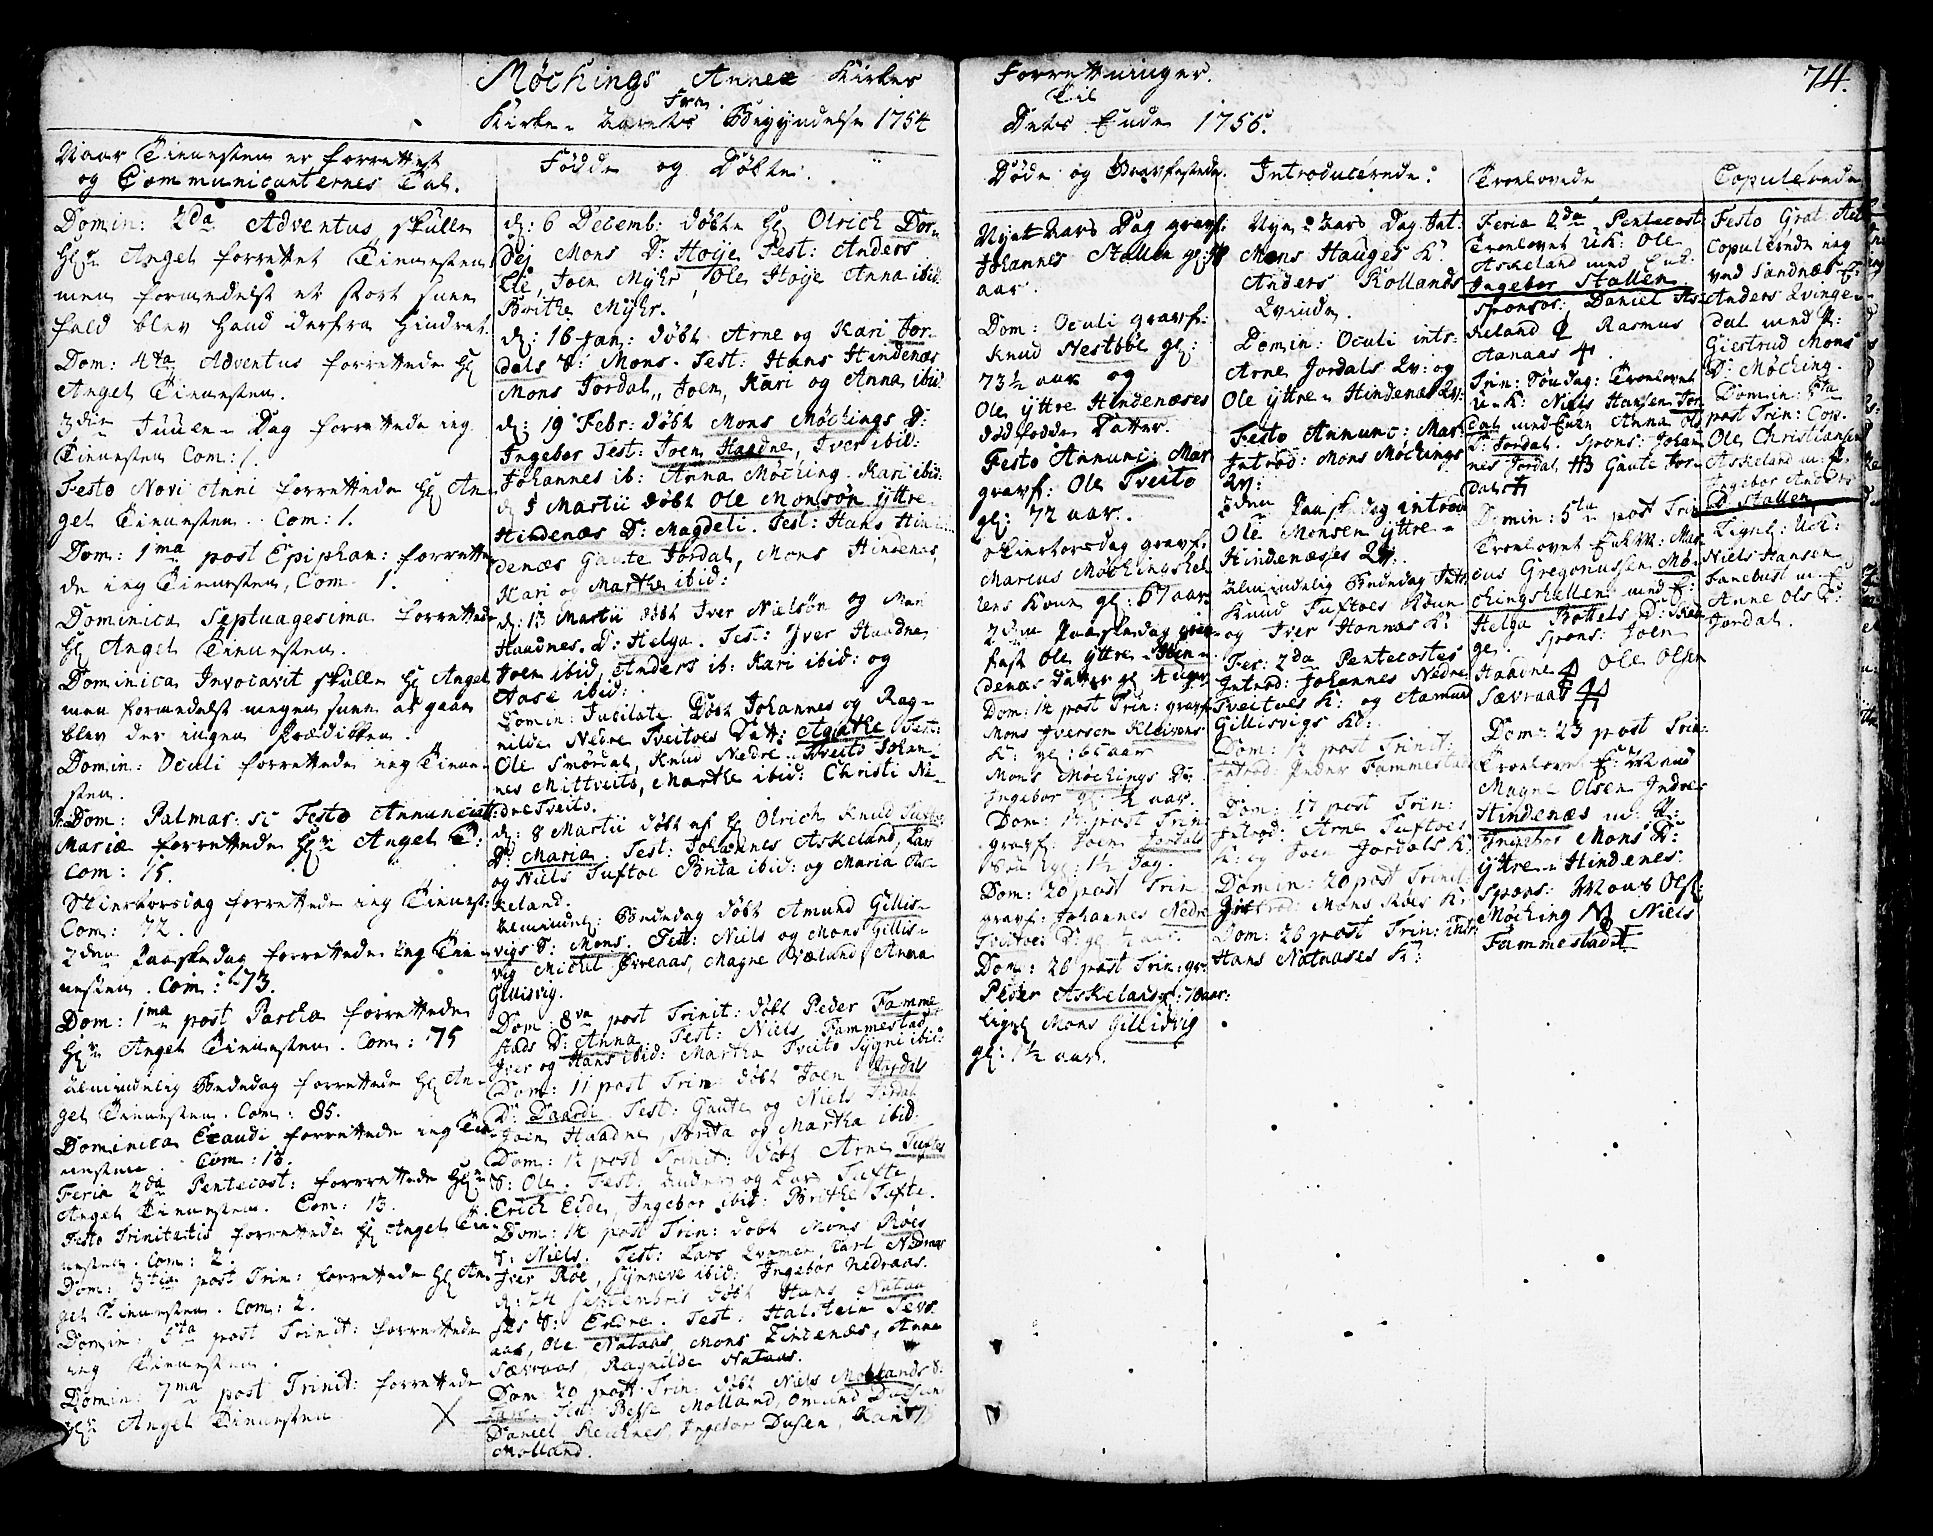 Møchings Annex Kirkes Forrettninger.
Fra Til
Kirke-Aarets Begyndelse 1754 Dets Ende 1755.
74.
Naar Tienesten er forrettet
og Communicanternes Tal.
Domin: 2da Adventus skulle
Hr Angel forrettet Tienesten
men formedelst et stort Snee
fald blev hand derfra hindret.
Dom: 4ta Adventus forrettede Hr
Angel Tienesten.
3die Juule-Dag forrettede ieg
Tienesten Com: 1.
Festo Novi Anni forrettede Hr An-
gel Tienesten. Com: 1.
Dom: 1ma post Epiphan: forrette-
de ieg Tienesten, Com. 1.
Dominica Septuagesima forrettede
Hr Angel Tienesten.
Dominica Invocavit skulle Hr Angel
men formedelst megen Snee at gaae
blev der ingen Prædiken.
Domin: Oculi forrettede ieg Tiene-
sten.
Dom: Palmar: sc Festo Annunciat:
Mariæ forrettede Hr Angel T:
Com: 15.
Skiertorsdag forrettede ieg Tienest:
Com: 72.
2den Paaskedag forrettede ieg Tie-
nesten. Com: 73.
Dom: 1ma post Pascha forrettede
Hr Angel Tienesten. Com: 75
Almindelig Bededag forrettede Hr An-
gel Tienesten. Com: 85.
Dominica Exaudi forrettede ieg Tie-
nesten. Com: 13.
Feria 2da Pentecost: forrettede Hr
Angel Tienesten. Com: 13.
Festo Trinitatis forrettede Hr Angel Tie-
nesten. Com: 2.
Dom: 3tia post Trin: forrettede Hr An-
gel Tienesten. Com: 2.
Domin: 5ta post Trinit: forrettede
ieg Tienesten.
Domin: 7ma post Trinit: forrettede
Hr Angel Tienesten
Fødde og Døbte.
d: 6 Decemb: døbt Hr Olrich
Mons D: Hoije Test: Anders
Lie, Joen Myhr, Ole Hoije Anna ibid:
Brithe Myhr.
d: 16 Jan: døbt Arne og Kari Jor-
dals S: Mons. Test: Hans Hindenæs
Mons Jordal, Joen, Kari og Anna ibid.
d: 19 Febr: døbt Mons Møchings D:
Ingebor Test: Joen Haadne, Iver ibid:
Johannes ib: Anna Møching Kari ibid:
d: 5 Martii døbt Ole Monsøn Yttre-
Hindenæs D: Magdeli. Test: Hans Hin-
denæs Gaute Jordal, Mons Hindenæs,
Kari og Marthe ibid:
d: 13 Martii døbt Iver Nielsøn og Mari
Haadnes D: Helga. Test: Iver Haadne
Joen ibid, Anders ib: Kari ibid: og
Aase ibid:
Domin: Jubilate Døbt Johannes og Rag-
nilde Nedre Tveitoes Datt: Agathe Test:
Ole Smørdal, Knud Nedre-Tveito Johan-
nes Mittveito, Marthe ibid: Christi Ne-
dre Tveito.
d: 8 Martii døbt af Hr Olrich Knud Tuftoes
D: Maria. Test: Johannes Askeland, Lars
og Niels Tuftoe Brita ibid: og Maria As-
keland.
Almindel: Bededag døbt Amund Gillis-
vigs S: Mons. Test: Niels og Mons Gillis-
vig Michel Øvreaas, Magne Bælund, Anna
Gillisvig.
Dom: 8va post Trinit: døbt Peder Famme-
stads D: Anna. Test: Niels Fammestad,
Iver og Hans ibid: Martha Tveito Sygni ibid:
Dom: 11 post Trin: døbt Joen Jordals
D: Test: Gaute og Niels Jordal
Joen Haadne, Brita og Martha ibid.
Dom: 12 post Trinit: døbt Arne Tuftes
S: Ole. Test: Anders og Lars Tufte
Erich Eide, Ingebor ibid: Brithe Tufte.
Dom: 14 post Trin: døbt Mons Røes
S: Niels. Test: Lars Qvamen, Carl Nedraas
Iver Røe, Synneve ibid: Ingebor Nedraas.
d: 24 Septembris døbt Hans Nataa-
ses S: Endre. Test: Halstein Sævr-
aas, Ole Nataas, Mons Hindenæs, Anna
Sævraas, Ragnilde Nataas.
Dom: 20 post Trin: døbt Niels Mollands S:
Test: Besse Molland, Omund Dusen
Daniel Reknes, Ingebor Dusen, Kari
Molland.
Døde og Gravfestede.
Nyet Aars Dag gravf:
Johannes Stallen gl:
aar.
Dom: Oculi gravf:
Knud Nestbøe gl:
73½ aar og
Ole Yttre Hindenæses
dødfødde Datter.
Festo Annunc: Mar
gravf: Ole Tveito
gl: 72 aar.
Skiertorsdag gravf:
Marcus Møchingshel-
lens Kone gl: 67 aar.
2den Paaskedag grav-
fæst Ole Yttre-Hin-
denæs Datter gl
Dom: 12 post Trin: gravf:
Mons Iversen Kleivens
K: gl: 65 aar
Mons Møchings D:
Ingebor gl: ½ aar.
Dom: 17 post Trin:
gravf: Joen Jordals
gl: 1½ Dag.
Dom: 20 post Trin
gravf: Johannes Nedre
Tveitoes D: gl: ½ aar.
Dom: 26 post Trin: gr:
Peder Askeland gl: 70 aar:
Ligel Mons Gillisvig
gl: 1½ aar.
Introducerede:
Nye-Aars Dag Int:
Mons Hauges K:
Anders Rollands
Qvinde.
Domin: Oculi intr:
Arne Jordals Qv: og
Ole Yttre-Hindenæs Qv:
Festo Annunc: Mar:
Introd: Mons Møchings
Qv:
2den Paaskedag introd
Ole Monsen Yttre-
Hindenæses Qv:
Almindelig Bededag Intr:
Knud Tuftoes Kone
og Iver Haanes K:
Fer: 2da Pentecostes
Introd: Johannes Nedre
Tveitoes K: og Aamund
Gillisvigs K:
Dom: 12 post Trinit:
Introd: Peder Fammestads
Dom: 17 post Trin:
Introd: Arne Tuftoes
K: og Joen Jordals K:
Domin: 20 post Trinit:
Introd: Mons Røes K:
Dom: 26 post Trin: intr
Hans Nataases K:
Troelovede
Feria 2da Pentecost
Troelovet U.K: Ole
Askeland med Enk:
Ingebor Stallen
Sponsor: Daniel As-
keland Rasmus
Aanaas
Trin: Søndag: Troelovet
U.K: Niels Hansen
med Anna Ols
D: Jordal. Spons: Johan-
nes Jordal Gaute Jor-
dal
Domin: 5ta post Trin
Troelovet Enk.M: Mar-
cus Gregoriussen Mø-
chingshellen med P:
Helga Bottels D: Hau-
ge. Spons: Joen
Haadne Ole Olsen
Sævraas
Dom: 23 post Trin:
Troelovet Mand
Magne Olsen Indre-
Hindenæs m: P:
Ingebor Mons D:
Yttre-Hindenes:
Spons: Mons Ols:
Møching Niels
Fammestad
Copulerede
Festo Grat: Act
Copulerede ieg
ved Sandnes
Anders Qvinge-
dal med P:
Giertrud Mons
D: Møching.
Domin: 5ta
post Trin: Cop.
Ole Christiansen
Askeland m: E:
Ingebor Anders
D. Stallen
Ligel: U.K:
Niels Hansen
Fanebust m: P:
Anne Ols D:
Jordal.